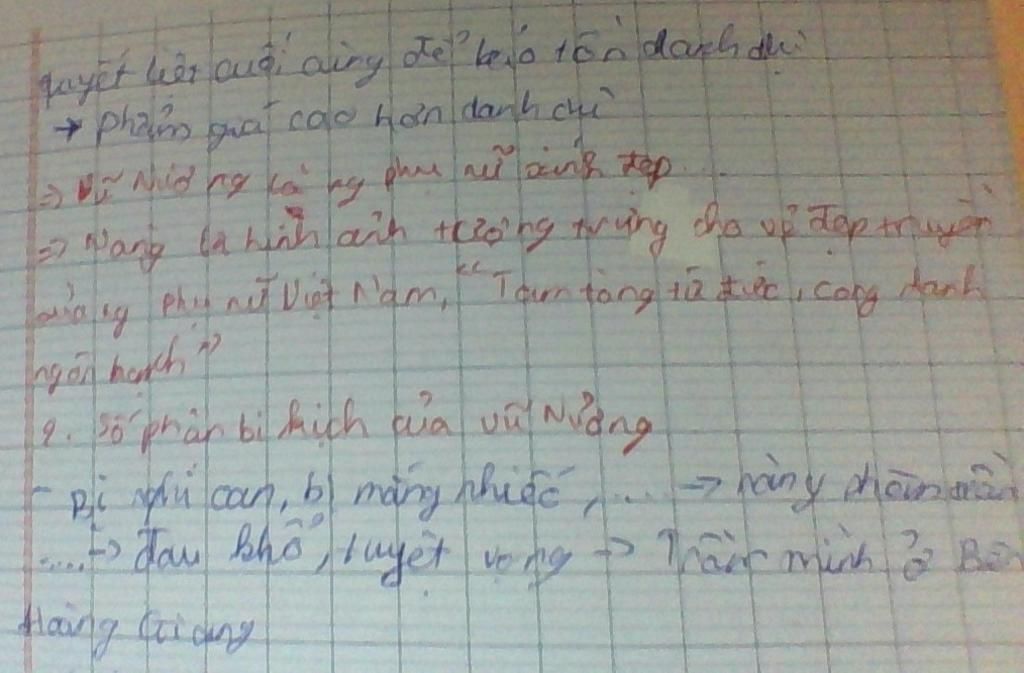 quyết liệt cuối cùng để bảo tồn danh dự
→ phẩm giá cao hơn danh dự
=> Vũ Nương là ng phụ nữ xinh đẹp...
=> Nàng là hình ảnh tượng trưng cho vẻ đẹp truyền
của ng phụ nữ Việt Nam, "Tam tòng tứ đức, công dung
ngôn hạnh"
2. Số phận bi kịch của vũ Nương
- Bị nghi oan, bị mắng nhiếc,... → nàng phân trần
....→ đau khổ, tuyệt vọng → Trầm mình ở Bến
Hoàng Giang